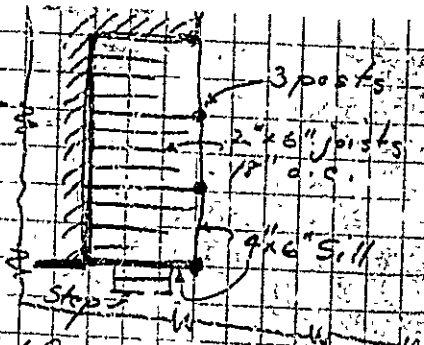 3 posts
2"x6" joists
18" o.c.
4"x6" Sill
Step